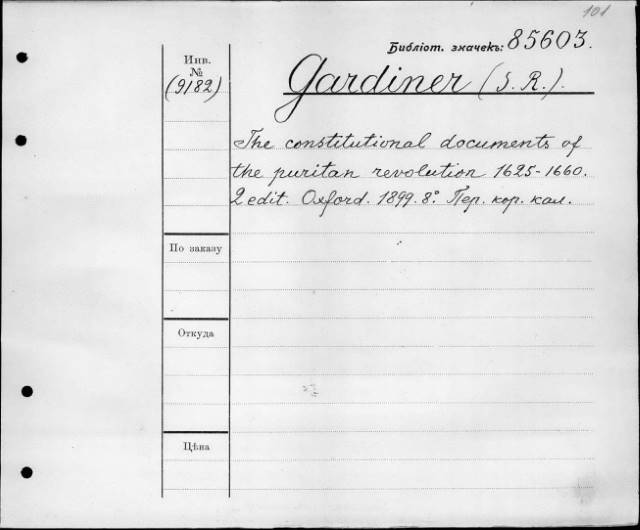 101
Библіот. значекъ: 85603.
Инв.
№
(9182)
Gardiner (S. R.).
The constitutional documents of
the puritan revolution 1625-1660.
2 edit. Oxford. 1899. 8°. Пер. кор. кал.
По заказу
Откуда
Цѣна